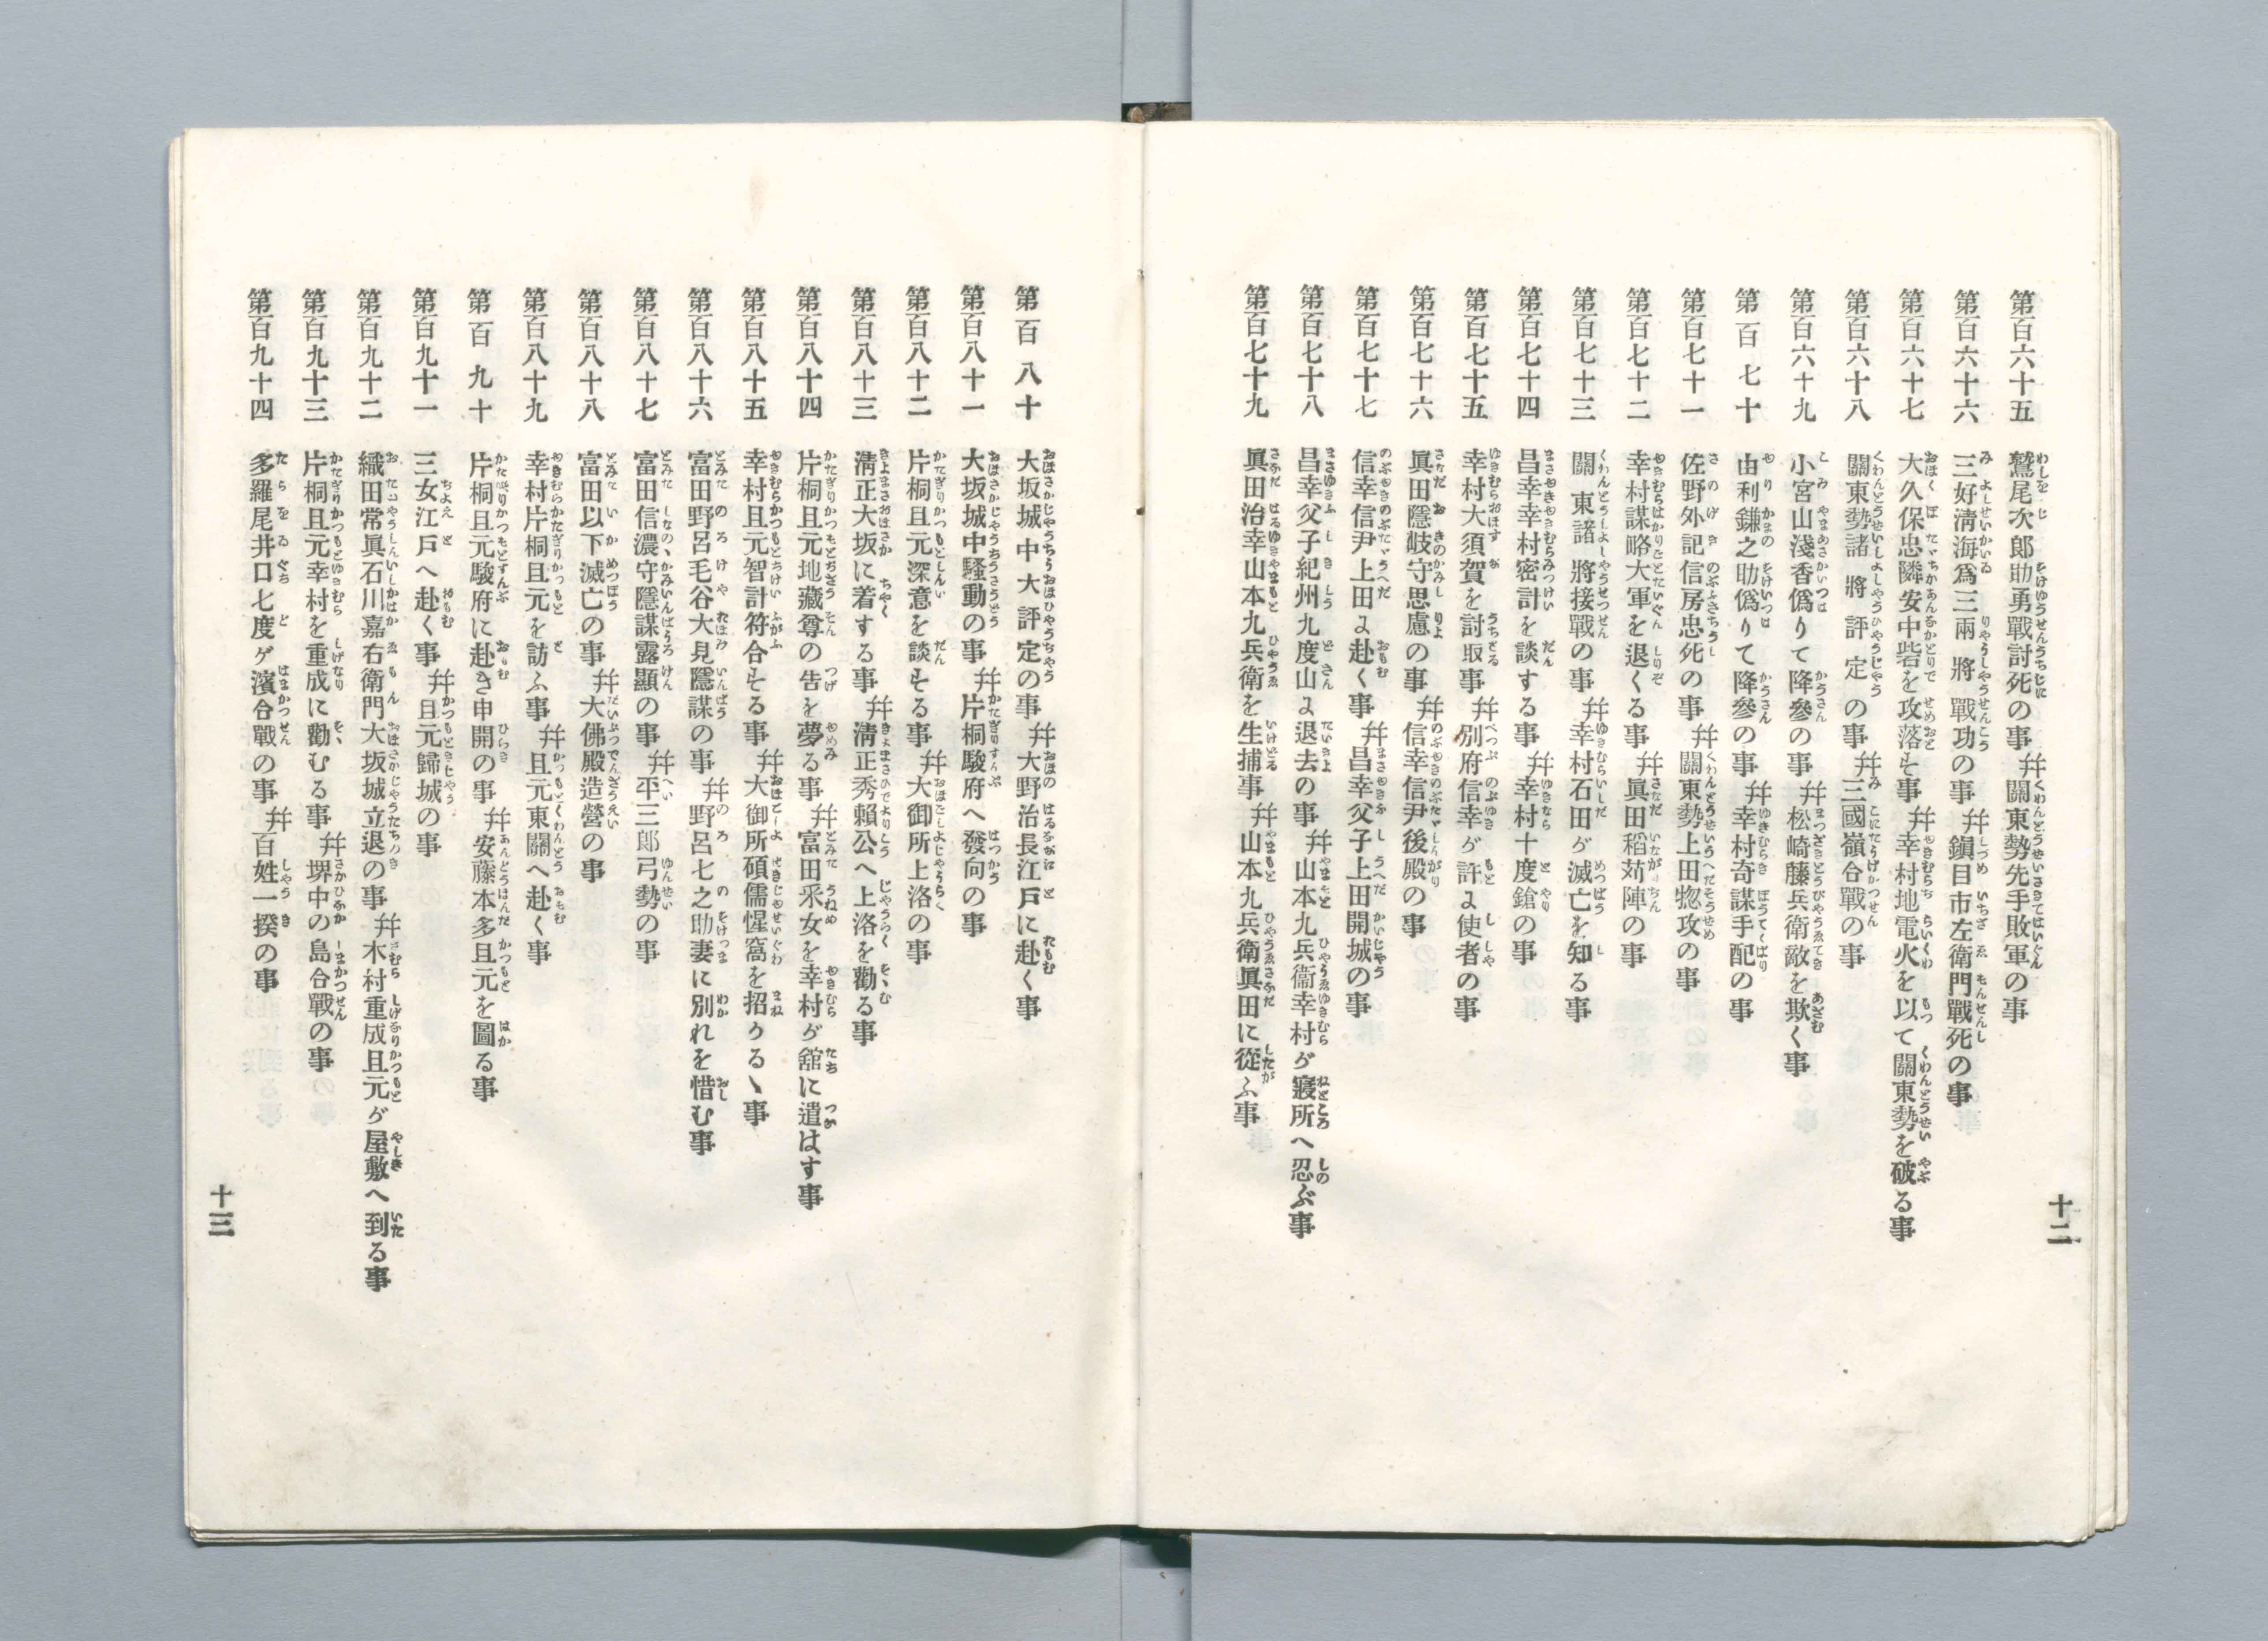 第百六十五　鷲尾次郎助勇戰討死の事　幷關東勢先手敗軍の事
第百六十六　三好淸海爲三兩將戰功の事　幷鎭目市左衛門戰死の事
第百六十七　大久保忠隣安中砦を攻落を事　幷幸村地電火を以て關東勢を破る事
第百六十八　關東勢諸將評定の事　幷三國嶺合戰の事
第百六十九　小宮山淺香僞りて降參の事　幷松崎藤兵衛敵を欺く事
第百七十　由利鎌之助僞りて降參の事　幷幸村奇謀手配の事
第百七十一　佐野外記信房忠死の事　幷關東勢上田惣攻の事
第百七十二　幸村謀略大軍を退くる事　幷眞田稻苅陣の事
第百七十三　關東諸將接戰の事　幷幸村石田が滅亡を知る事
第百七十四　昌幸幸村密計を談する事　幷幸村十度鎗の事
第百七十五　幸村大須賀を討取事　幷別府信幸が許に使者の事
第百七十六　眞田隱岐守思慮の事　幷信幸信尹後殿の事
第百七十七　信幸信尹上田に赴く事　幷昌幸父子上田開城の事
第百七十八　昌幸父子紀州九度山に退去の事　幷山本九兵衞幸村が寢所へ忍ぶ事
第百七十九　眞田治幸山本九兵衛を生捕事　幷山本九兵衛眞田に從ふ事
十二
第百八十　大坂城中大評定の事　幷大野治長江戸に赴く事
第百八十一　大坂城中騷動の事　幷片桐駿府へ發向の事
第百八十二　片桐且元深意を談せる事　幷大御所上洛の事
第百八十三　淸正大坂に着する事　幷淸正秀賴公へ上洛を勸る事
第百八十四　片桐且元地藏尊の告を夢る事　幷富田采女を幸村が舘に遣はす事
第百八十五　幸村且元智計符合せる事　幷大御所碩儒惺窩を招かるゝ事
第百八十六　富田野呂毛谷大見隱謀の事　幷野呂七之助妻に別れを惜む事
第百八十七　富田信濃守隱謀露顯の事　幷平三郎弓勢の事
第百八十八　富田以下滅亡の事　幷大佛殿造營の事
第百八十九　幸村片桐且元を訪ふ事　幷且元東關へ赴く事
第百九十　片桐且元駿府に赴き申開の事　幷安藤本多且元を圖る事
第百九十一　三女江戸へ赴く事　幷且元歸城の事
第百九十二　織田常眞石川嘉右衛門大坂城立退の事　幷木村重成且元が屋敷へ到る事
第百九十三　片桐且元幸村を重成に勸むる事　幷堺中の島合戰の事
第百九十四　多羅尾井口七度ゲ濱合戰の事　幷百姓一揆の事
十三